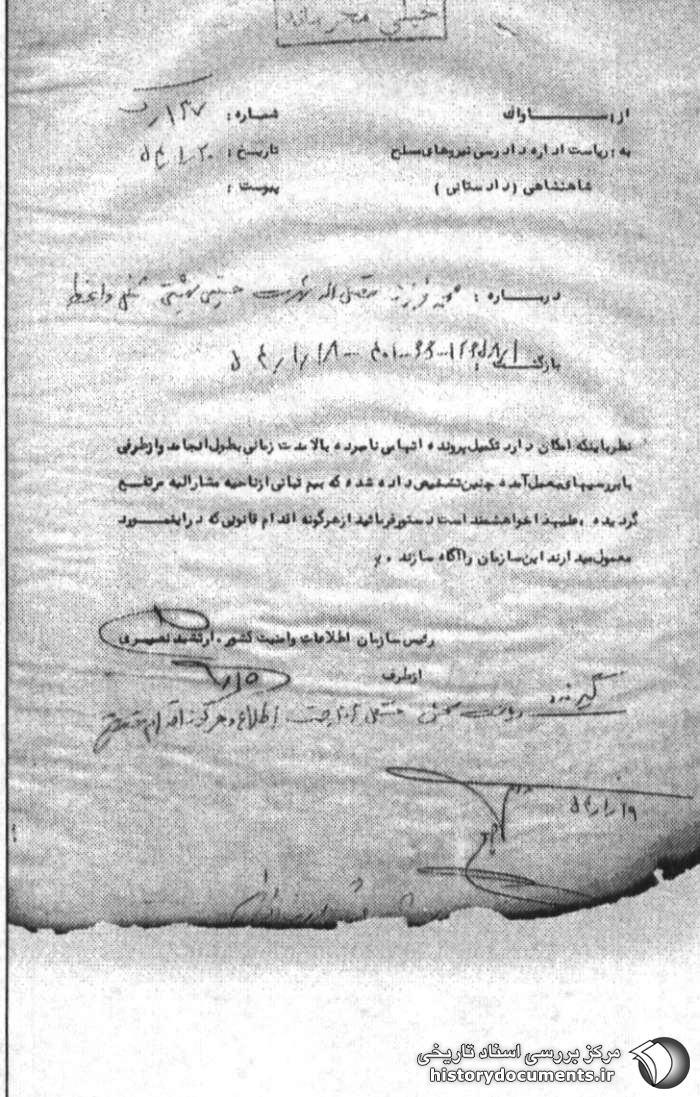 خیلی محرمانه
از: ساواک
شماره: ۱۳۷/
به: ریاست اداره دادرسی نیروهای مسلح
تاریخ: ۲۰
شاهنشاهی (دادستانی)
پیوست:
درباره: محمد فرزند فضل اله شهرت حسینی بهشتی شغل واعظ
بازگشت
نظر باینکه امکان دارد تکمیل پرونده اتهامی نامبرده بالا مدت زمانی بطول انجامد و از طرفی
با بررسیهای معمول آمده چنین تشخیص داده شده که بیم تبانی از ناحیه مشارالیه مرتفع
گردیده، علیهذا خواهشمند است دستور فرمائید از هرگونه اقدام قانونی که در اینمورد
معمول میدارند این سازمان را آگاه سازند.
رئیس سازمان اطلاعات و امنیت کشور. ارتشبد نصیری
از طرف
گیرنده
جهت اطلاع و هرگونه اقدام مقتضی
مرکز بررسی اسناد تاریخی
historydocuments.ir